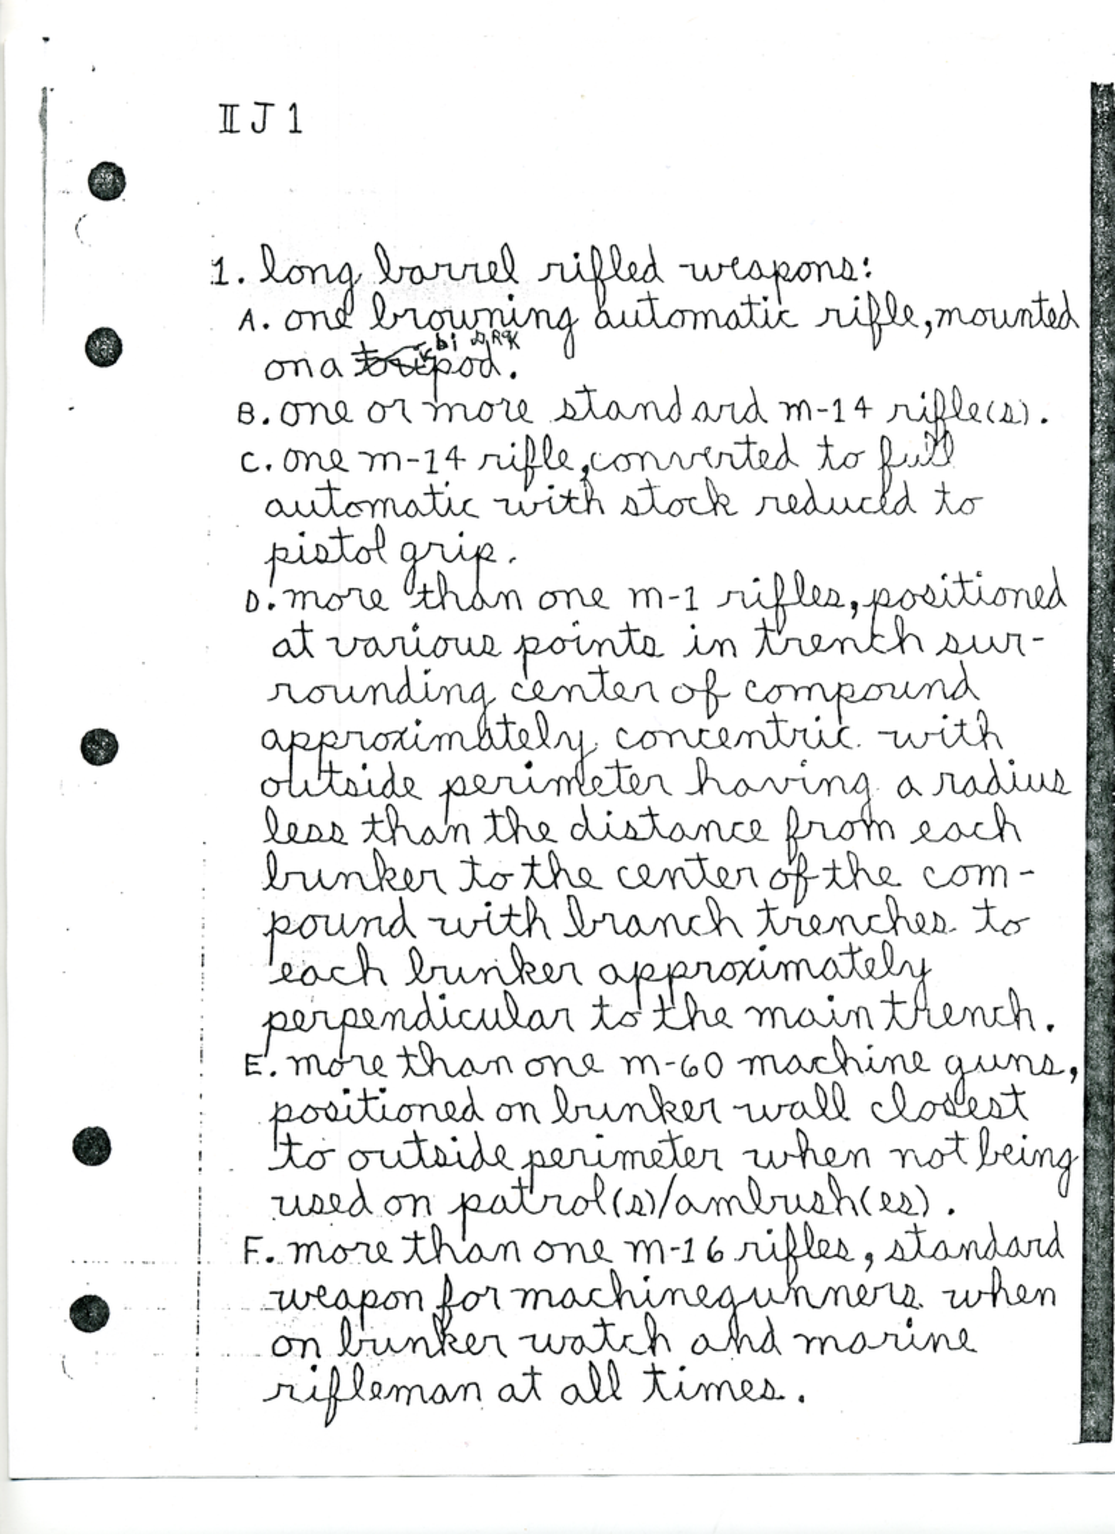 II J 1
1. long barrel rifled weapons:
A. one browning automatic rifle, mounted
on a bipod.
B. one or more standard m-14 rifle(s).
C. one m-14 rifle, converted to full
automatic with stock reduced to
pistol grip.
D. more than one m-1 rifles, positioned
at various points in trench sur-
rounding center of compound
approximately concentric with
outside perimeter having a radius
less than the distance from each
bunker to the center of the com-
pound with branch trenches to
each bunker approximately
perpendicular to the main trench.
E. more than one m-60 machine guns,
positioned on bunker wall closest
to outside perimeter when not being
used on patrol(s)/ambush(es).
F. more than one m-16 rifles, standard
weapon for machinegunners when
on bunker watch and marine
rifleman at all times.